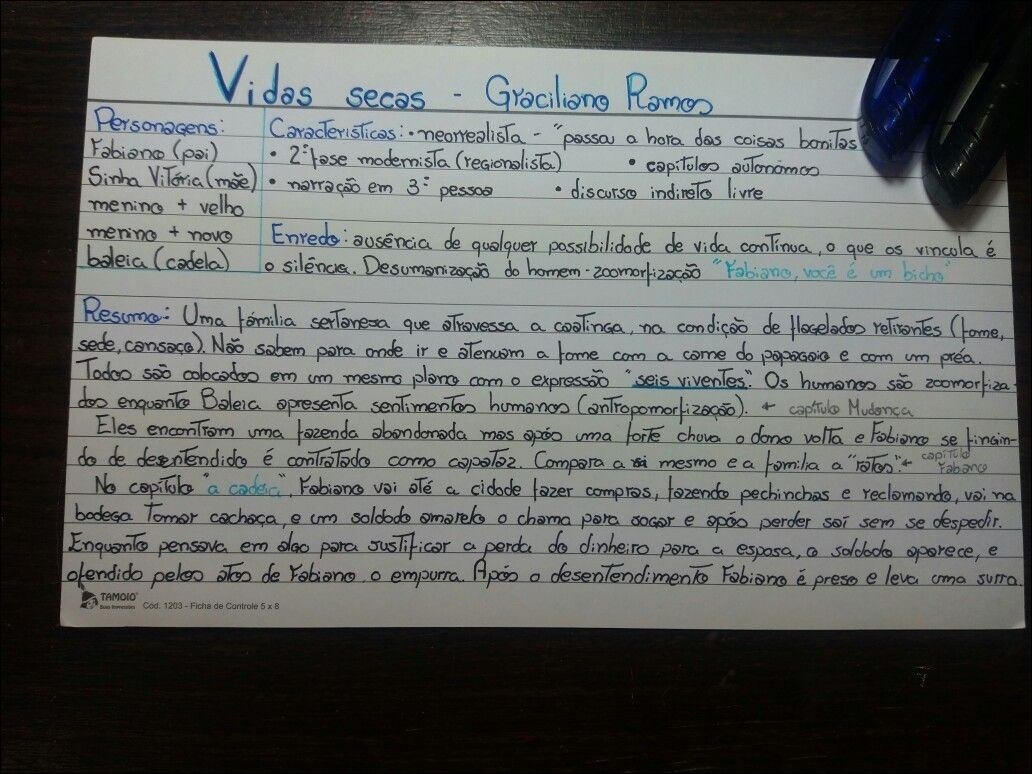 Vidas secas - Graciliano Ramos
Personagens:
Fabiano (pai)
Sinha Vitória (mãe)
menino + velho
menino + novo
baleia (cadela)
Características: • neorrealista - "passou a hora das coisas bonitas
• 2ª fase modernista (regionalista) • capítulos autônomos
• narração em 3ª pessoa • discurso indireto livre
Enredo: ausência de qualquer possibilidade de vida contínua, o que os vincula é
o silêncio. Desumanização do homem - zoomorfização "Fabiano, você é um bicho"
Resumo: Uma família sertaneja que atravessa a caatinga, na condição de flagelados retirantes (fome,
sede, cansaço). Não sabem para onde ir e atenuam a fome com a carne do papagaio e com um préa.
Todos são colocados em um mesmo plano com o expressão "seis viventes". Os humanos são zoomorfiza-
dos enquanto Baleia apresenta sentimentos humanos (antropomorfização). ← capítulo Mudança
Eles encontram uma fazenda abandonada mas após uma forte chuva o dono volta e Fabiano se fingin-
do de desentendido é contratado como capataz. Compara a si mesmo e a família a "ratos". ← capítulo Fabiano
No capítulo "a cadeia", Fabiano vai até a cidade fazer compras, fazendo pechinchas e reclamando, vai na
bodega tomar cachaça, e um soldado amarelo o chama para jogar e após perder sai sem se despedir.
Enquanto pensava em algo para justificar a perda do dinheiro para a esposa, o soldado aparece, e
ofendido pelos atos de Fabiano o empurra. Após o desentendimento Fabiano é preso e leva uma surra.
TAMOIO
Cód. 1203 - Ficha de Controle 5 x 8